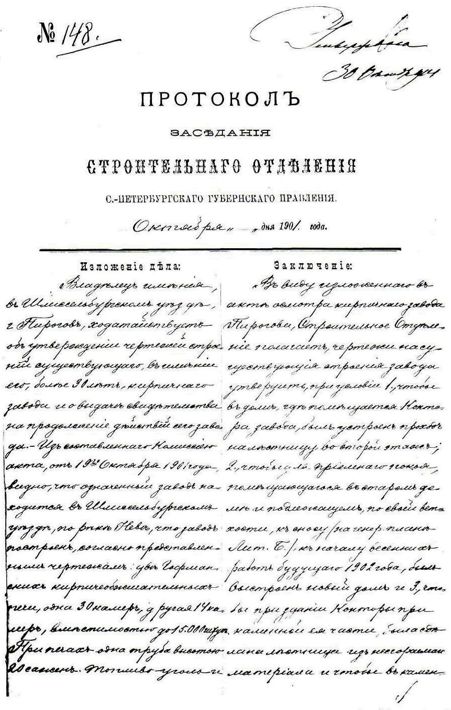 № 148.
Утверждено
30 Октября
ПРОТОКОЛЪ
ЗАСѢДАНІЯ
СТРОИТЕЛЬНАГО ОТДѢЛЕНІЯ
С.-ПЕТЕРБУРГСКАГО ГУБЕРНСКАГО ПРАВЛЕНІЯ.
Октября „ „ дня 1901 года.
Изложеніе дѣла:
Владѣлецъ имѣнія,
въ Шлиссельбургскомъ уѣздѣ,
г. Пироговъ, ходатайствуетъ
объ утвержденіи чертежей строе
ній существующаго, въ имѣніи
его, болѣе 30 лѣтъ, кирпичнаго
завода и о выдачѣ свидѣтельства
на продолженіе дѣйствій сего заво
да. — Изъ составленнаго Комиссіею
акта, отъ 19го Октября 1901 года,
видно, что означенный заводъ на
ходится въ Шлиссельбургскомъ
уѣздѣ, по рѣкѣ Невѣ, что заводъ
построенъ, согласно представлен
нымъ чертежамъ: двѣ Гофман
скихъ кирпичеобжигательныхъ
печи, одна 30 камеръ, другая 14 ка
меръ, вмѣстимостью до 15.000 штукъ
При печахъ одна труба высотою
20 саженъ. Топливо уголь и
Заключеніе:
Въ виду изложеннаго въ
актѣ осмотра кирпичнаго завода
Пирогова, Строительное Отдѣле
ніе полагаетъ, чертежи на су
ществующія строенія завода
утвердить, при условіи 1, чтобы
въ домѣ, гдѣ помѣщается Конто
ра завода, былъ устроенъ
на лѣстницу во второй этажъ;
2, чтобы для пріемнаго покоя,
помѣщающагося въ старомъ до
мѣ и подлежащемъ, по своей вет
хости, къ сносу (на генер. планѣ
Лит. Б.) къ началу весеннихъ
работъ будущаго 1902 года, былъ
выстроенъ новый домъ и 3, что
бы при зданіи Конторы при
каменной ея части, была сдѣ
лана лѣстница изъ несгораемаго
матеріала и чтобы въ камен-